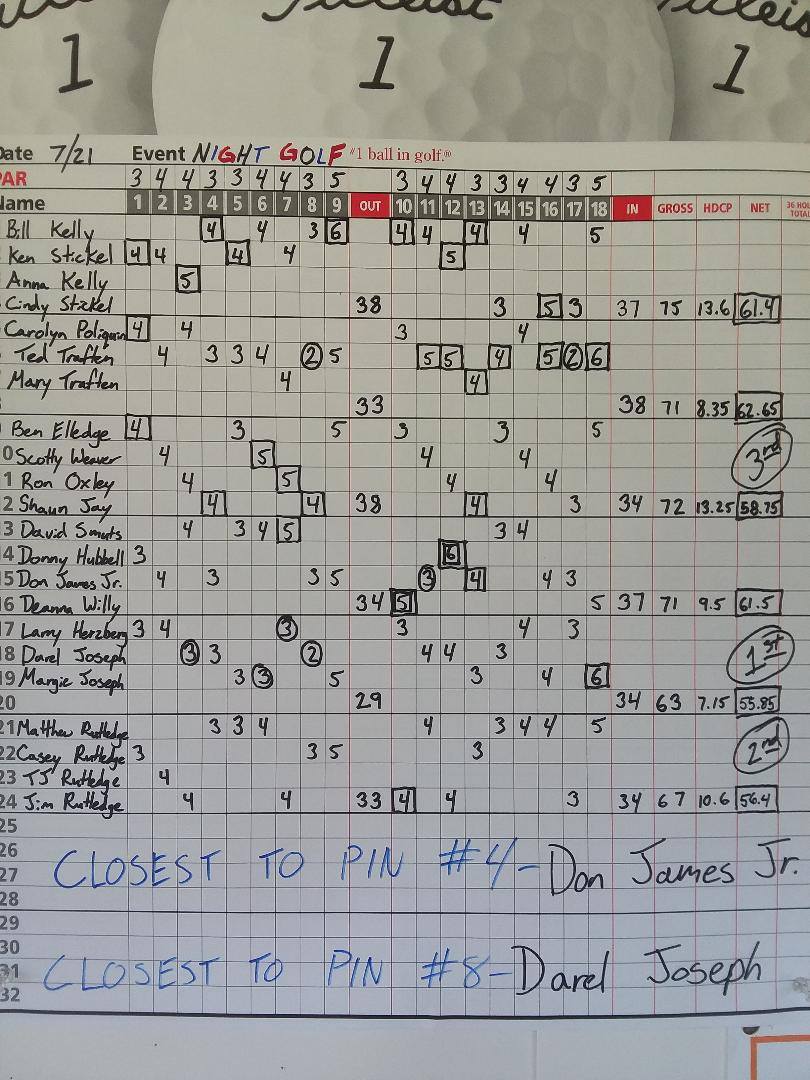 Titleist
1
1
1
Date 7/21 Event NIGHT GOLF #1 ball in golf.®
PAR 3 4 4 3 3 4 4 3 5 3 4 4 3 3 4 4 3 5
Name 1 2 3 4 5 6 7 8 9 OUT 10 11 12 13 14 15 16 17 18 IN GROSS HDCP NET 36 HOLE TOTAL
Bill Kelly 4 4 3 6 4 4 4 4 5
Ken Stickel 4 4 4 4 5
Anna Kelly 5
Cindy Stickel 38 3 5 3 37 75 13.6 61.4
Carolyn Poliquin 4 4 3 4
Ted Traften 4 3 3 4 2 5 5 5 4 5 2 6
Mary Traften 4 4
33 38 71 8.35 62.65
Ben Elledge 4 3 5 3 3 5
0 Scotty Weaver 4 5 4 4 3rd
1 Ron Oxley 4 5 4 4
2 Shaun Jay 4 4 38 4 3 34 72 13.25 58.75
3 David Smuts 4 3 4 5 3 4
4 Donny Hubbell 3 6
5 Don James Jr. 4 3 3 5 3 4 4 3
6 Deanna Willy 34 5 5 37 71 9.5 61.5
17 Larry Herzberg 3 4 3 3 4 3
18 Darel Joseph 3 3 2 4 4 3 1st
19 Margie Joseph 3 3 5 3 4 6
20 29 34 63 7.15 55.85
21 Matthew Rutledge 3 3 4 4 3 4 4 5
22 Casey Rutledge 3 3 5 3 2nd
23 TJ Rutledge 4
24 Jim Rutledge 4 4 33 4 4 3 34 67 10.6 56.4
25
26
27
28
CLOSEST TO PIN #4 - Don James Jr.
29
30
31
32
CLOSEST TO PIN #8 - Darel Joseph